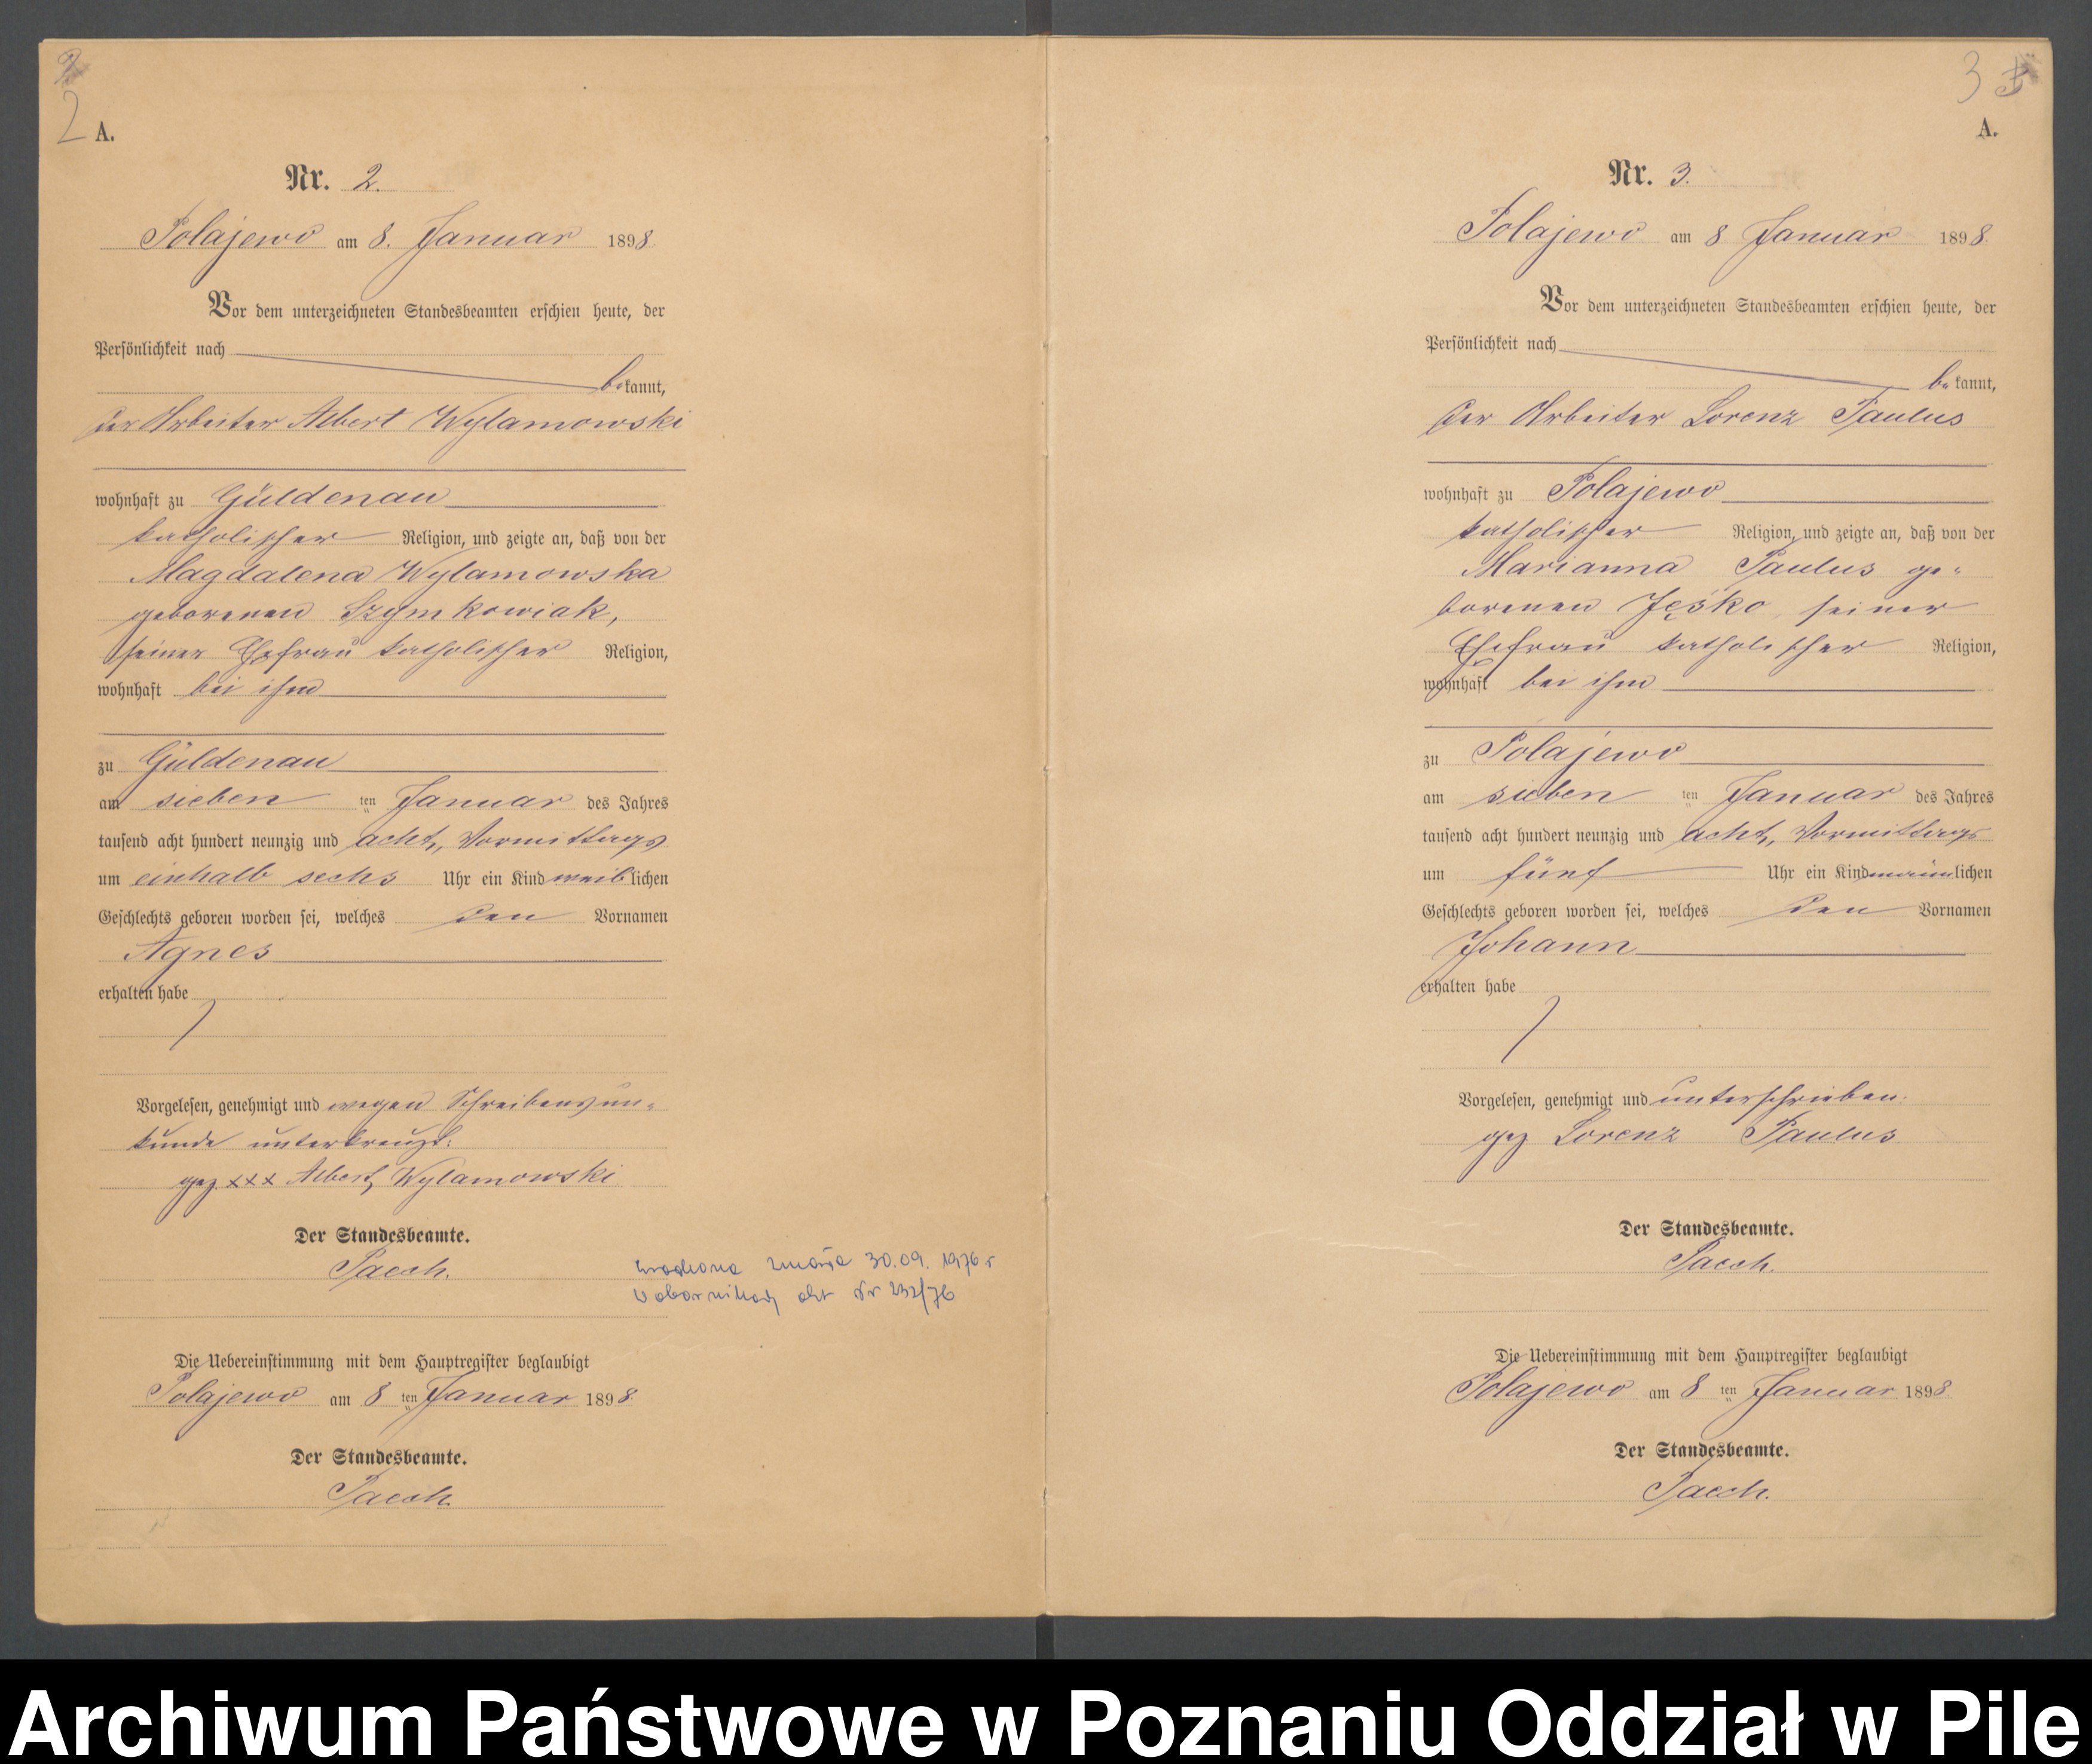 2
A.
Nr. 2.
Polajewo am 8. Januar 1898.
Vor dem unterzeichneten Standesbeamten erschien heute, der
Persönlichkeit nach
bekannt,
der Arbeiter Albert Wylamowski
wohnhaft zu Güldenau
katholischer Religion, und zeigte an, daß von der
Magdalena Wylamowska
geborenen Szymkowiak,
seiner Ehefrau katholischer Religion,
wohnhaft bei ihm
zu Güldenau
am sieben ten Januar des Jahres
tausend acht hundert neunzig und acht, Vormittags
um einhalb sechs Uhr ein Kind weiblichen
Geschlechts geboren worden sei, welches den Vornamen
Agnes
erhalten habe
Vorgelesen, genehmigt und wegen Schreibensun-
kunde unterkreuzt.
gez xxx Albert Wylamowski
Der Standesbeamte.
zmarła 30.09.1976 r
akt Nr 232/76
Die Uebereinstimmung mit dem Hauptregister beglaubigt
Polajewo am 8 ten Januar 1898.
Der Standesbeamte.
3
A.
Nr. 3.
Polajewo am 8 Januar 1898.
Vor dem unterzeichneten Standesbeamten erschien heute, der
Persönlichkeit nach
bekannt,
der Arbeiter Lorenz Paulus
wohnhaft zu Polajewo
katholischer Religion, und zeigte an, daß von der
Marianna Paulus ge-
borenen Jęśko seiner
Ehefrau katholischer Religion,
wohnhaft bei ihm
zu Polajewo
am sieben ten Januar des Jahres
tausend acht hundert neunzig und acht, Vormittags
um fünf Uhr ein Kind männlichen
Geschlechts geboren worden sei, welches den Vornamen
Johann
erhalten habe
Vorgelesen, genehmigt und unterschrieben.
gez Lorenz Paulus
Der Standesbeamte.
Die Uebereinstimmung mit dem Hauptregister beglaubigt
Polajewo am 8 ten Januar 1898.
Der Standesbeamte.
Archiwum Państwowe w Poznaniu Oddział w Pile